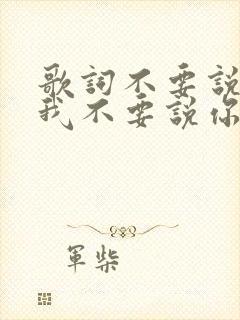 歌詞不要說
我不要說你
軍柴